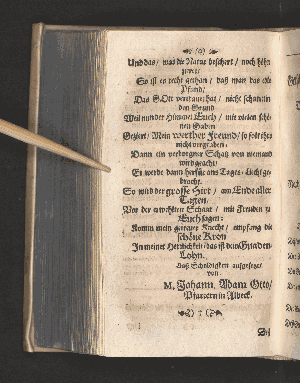 (o)
Und das / was die Natur beschert / noch höher
zieret /
So ist es recht gethan / daß man das edle
Pfund /
Das GOtt vertrauet hat / nicht scharr in
den Grund
Weil nun der Himmel Euch / mit vielen schö-
nen Gaben
Geziert / Mein werther Freund / so solt ihrs
nicht vergraben.
Dann ein verborgner Schatz von niemand
wird geacht /
Er werde dann herfür ans Tages-Liecht ge-
bracht.
So wird der grosse Hirt / am Ende aller
Tagen,
Vor der erwehlten Schaar / mit Freuden zu
Euch sagen:
Komm mein getreuer Knecht / empfang die
schöne Kron
In meiner Herrlichkeit / das ist dein Gnaden-
Lohn.
Schuldigkeit aufgesetzt /
von
M. Johann Adam Otto /
Pfarrern in Albeck.